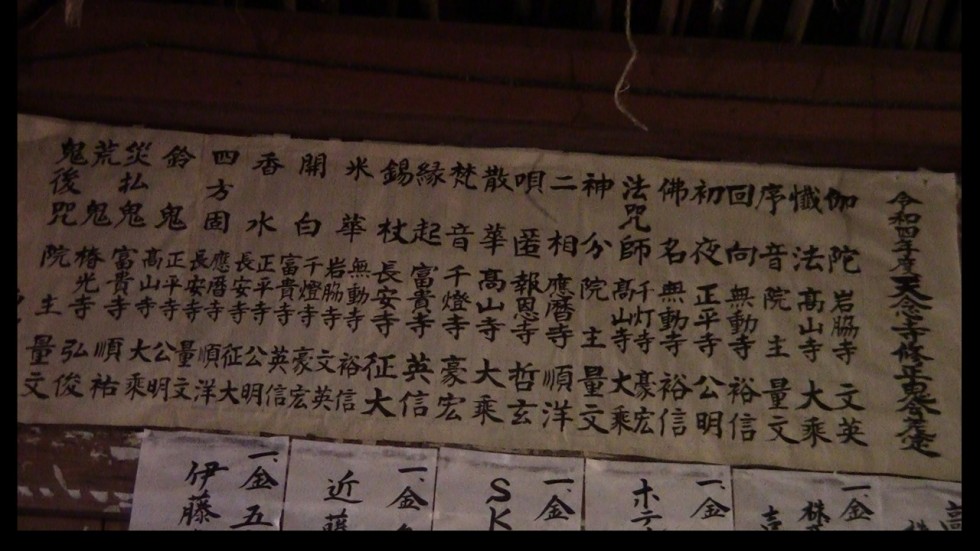 令和四年度天念寺修正鬼会差定
伽陀 岩脇寺 文英
懺法 高山寺 大乘
序音 院主 量文
回向 無動寺 裕信
初夜 正平寺 公明
佛名 無動寺 裕信
法咒師 千灯寺 豪宏
高山寺 大乘
神分 院主 量文
二相 應暦寺 順洋
唄匿 報恩寺 哲玄
散華 高山寺 大乘
梵音 千燈寺 豪宏
縁起 富貴寺 英信
錫杖 長安寺 征大
米華 無動寺 裕信
岩脇寺 文英
開白 千燈寺 豪宏
富貴寺 英信
香水 正平寺 公明
長安寺 征大
四方固 應暦寺 順洋
長安寺 量文
鈴鬼 正平寺 公明
高山寺 大乘
災払鬼 富貴寺 順祐
荒鬼 椿光寺 弘俊
鬼後咒 院主 量文
一、金
一、金
ホテ
一、金
SK
一、金
近藤
一、金五
伊藤